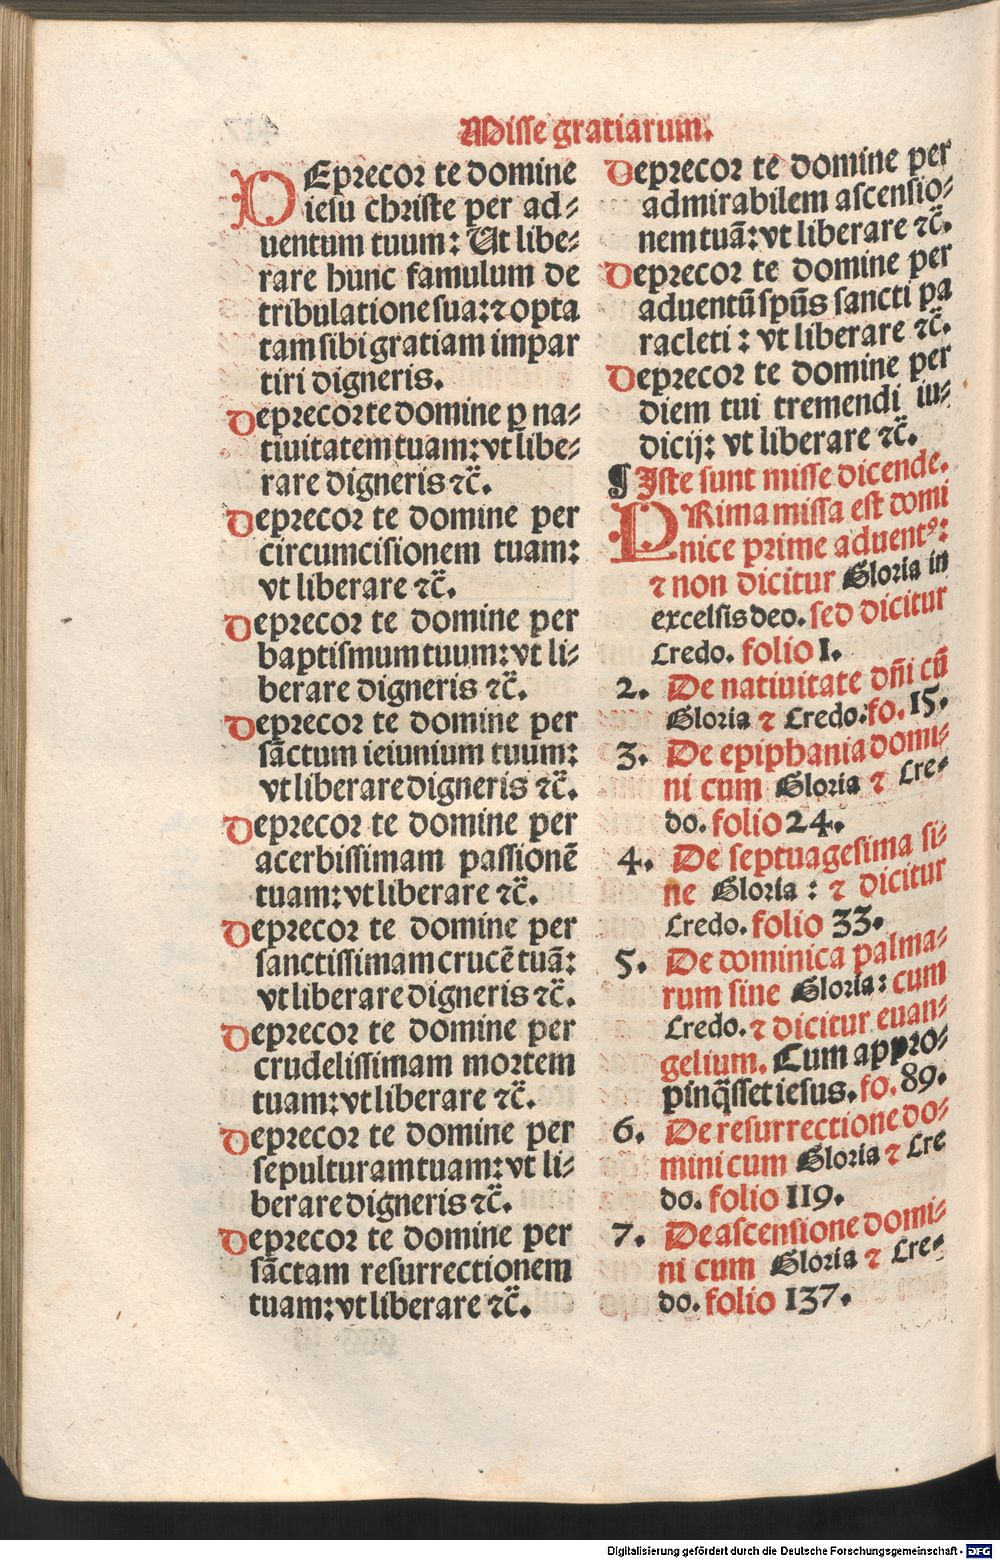 Misse gratiarum.
DEprecor te domine
iesu christe per ad⸗
uentum tuum: Ut libe⸗
rare hunc famulum de
tribulatione sua: ⁊ opta
tam sibi gratiam impar
tiri digneris.
Deprecor te domine ꝑ na⸗
tiuitatem tuam: vt libe⸗
rare digneris ⁊c̃.
Deprecor te domine per
circumcisionem tuam:
vt liberare ⁊c̃.
Deprecor te domine per
baptismum tuum: vt li⸗
berare digneris ⁊c̃.
Deprecor te domine per
sãctum ieiunium tuum:
vt liberare digneris ⁊c̃.
Deprecor te domine per
acerbissimam passionẽ
tuam: vt liberare ⁊c̃.
Deprecor te domine per
sanctissimam crucẽ tuã:
vt liberare digneris ⁊c̃.
Deprecor te domine per
crudelissimam mortem
tuam: vt liberare ⁊c̃.
Deprecor te domine per
sepulturam tuam: vt li⸗
berare digneris ⁊c̃.
Deprecor te domine per
sãctam resurrectionem
tuam: vt liberare ⁊c̃.
Deprecor te domine per
admirabilem ascensio⸗
nem tuã: vt liberare ⁊c̃.
Deprecor te domine per
aduentũ spũs sancti pa
racleti: vt liberare ⁊c̃.
Deprecor te domine per
diem tui tremendi iu⸗
dicij: vt liberare ⁊c̃.
¶ Iste sunt misse dicende.
PRima missa est domi
nice prime aduentꝰ:
⁊ non dicitur Gloria in
excelsis deo. sed dicitur
Credo. folio 1.
2. De natiuitate dñi cũ
Gloria ⁊ Credo. fo. 15.
3. De epiphania domi⸗
ni cum Gloria ⁊ Cre⸗
do. folio 24.
4. De septuagesima si⸗
ne Gloria: ⁊ dicitur
Credo. folio 33.
5. De dominica palma⸗
rum sine Gloria: cum
Credo. ⁊ dicitur euan⸗
gelium. Cum appro⸗
pinq̃sset iesus. fo. 89.
6. De resurrectione do⸗
mini cum Gloria ⁊ Cre
do. folio 119.
7. De ascensione domi⸗
ni cum Gloria ⁊ Cre⸗
do. folio 137.
Digitalisierung gefördert durch die Deutsche Forschungsgemeinschaft - DFG